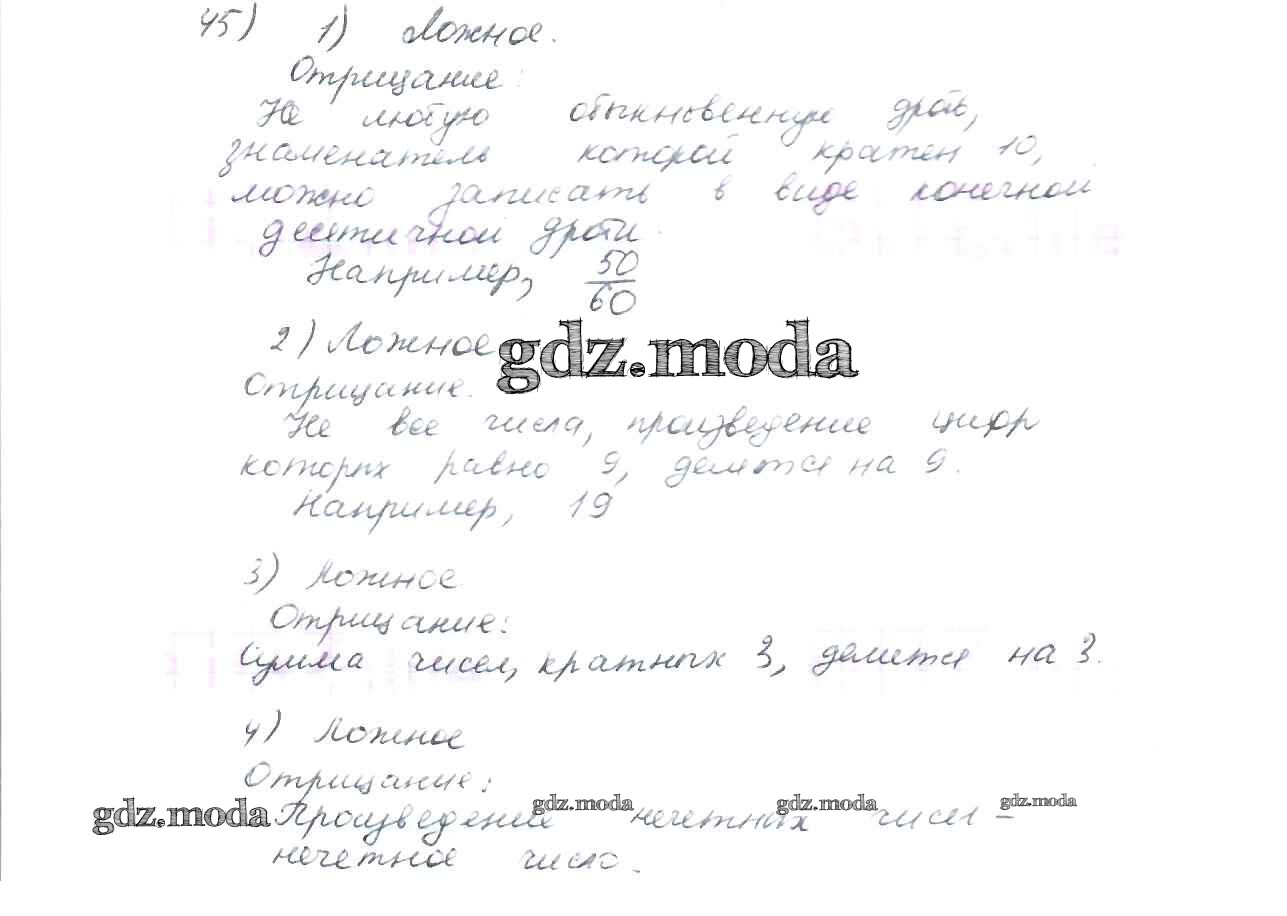 45) 1) Ложное.
Отрицание:
Не любую обыкновенную дробь,
знаменатель которой кратен 10,
можно записать в виде конечной
десятичной дроби.
Например, 50/60
2) Ложное
gdz.moda
Отрицание.
Не все числа, произведение цифр
которых равно 9, делятся на 9.
Например, 19
3) Ложное
Отрицание:
Сумма чисел, кратных 3, делится на 3.
4) Ложное
Отрицание:
gdz.moda Произведение нечетных чисел –
gdz.moda gdz.moda gdz.moda
нечетное число.